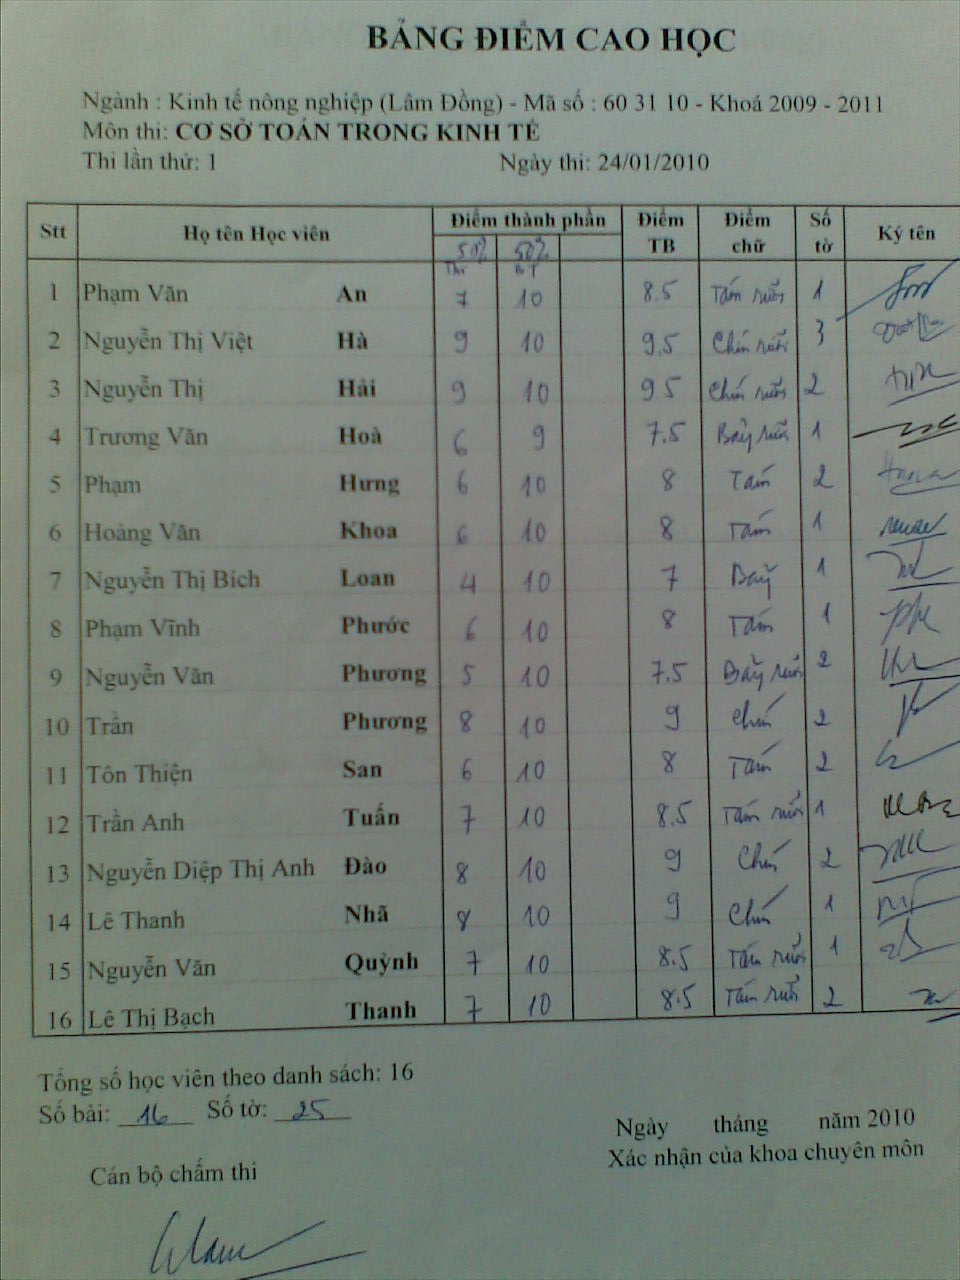 BẢNG ĐIỂM CAO HỌC
Ngành : Kinh tế nông nghiệp (Lâm Đồng) - Mã số : 60 31 10 - Khoá 2009 - 2011
Môn thi: CƠ SỞ TOÁN TRONG KINH TẾ
Thi lần thứ: 1 Ngày thi: 24/01/2010
Stt Họ tên Học viên Điểm thành phần Điểm TB Điểm chữ Số tờ Ký tên
50% 50%
Thi BT
1 Phạm Văn An 7 10 8.5 Tám rưỡi 1
2 Nguyễn Thị Việt Hà 9 10 9.5 Chín rưỡi 3
3 Nguyễn Thị Hải 9 10 9 5 Chín rưỡi 2
4 Trương Văn Hoà 6 9 7.5 Bảy rưỡi 1
5 Phạm Hưng 6 10 8 Tám 2
6 Hoàng Văn Khoa 6 10 8 Tám 1
7 Nguyễn Thị Bích Loan 4 10 7 Bảy 1
8 Phạm Vĩnh Phước 6 10 8 Tám 1
9 Nguyễn Văn Phương 5 10 7.5 Bảy rưỡi 2
10 Trần Phương 8 10 9 Chín 2
11 Tôn Thiện San 6 10 8 Tám 2
12 Trần Anh Tuấn 7 10 8.5 Tám rưỡi 1
13 Nguyễn Diệp Thị Anh Đào 8 10 9 Chín 2
14 Lê Thanh Nhã 8 10 9 Chín 1
15 Nguyễn Văn Quỳnh 7 10 8.5 Tám rưỡi 1
16 Lê Thị Bạch Thanh 7 10 8.5 Tám rưỡi 2
Tổng số học viên theo danh sách: 16
Số bài: 16 Số tờ: 25
Ngày tháng năm 2010
Xác nhận của khoa chuyên môn
Cán bộ chấm thi